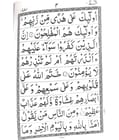 ٣
أُولَٰئِكَ عَلَىٰ هُدًى مِّن رَّبِّهِمْ
وَأُولَٰئِكَ هُمُ الْمُفْلِحُونَ إِنَّ
الَّذِينَ كَفَرُوا سَوَاءٌ عَلَيْهِمْ
ءَأَنذَرْتَهُمْ أَمْ لَمْ تُنذِرْهُمْ
لَا يُؤْمِنُونَ خَتَمَ اللَّهُ عَلَىٰ
قُلُوبِهِمْ وَعَلَىٰ سَمْعِهِمْ وَعَلَىٰ
أَبْصَارِهِمْ غِشَاوَةٌ وَلَهُمْ
عَذَابٌ عَظِيمٌ وَمِنَ النَّاسِ